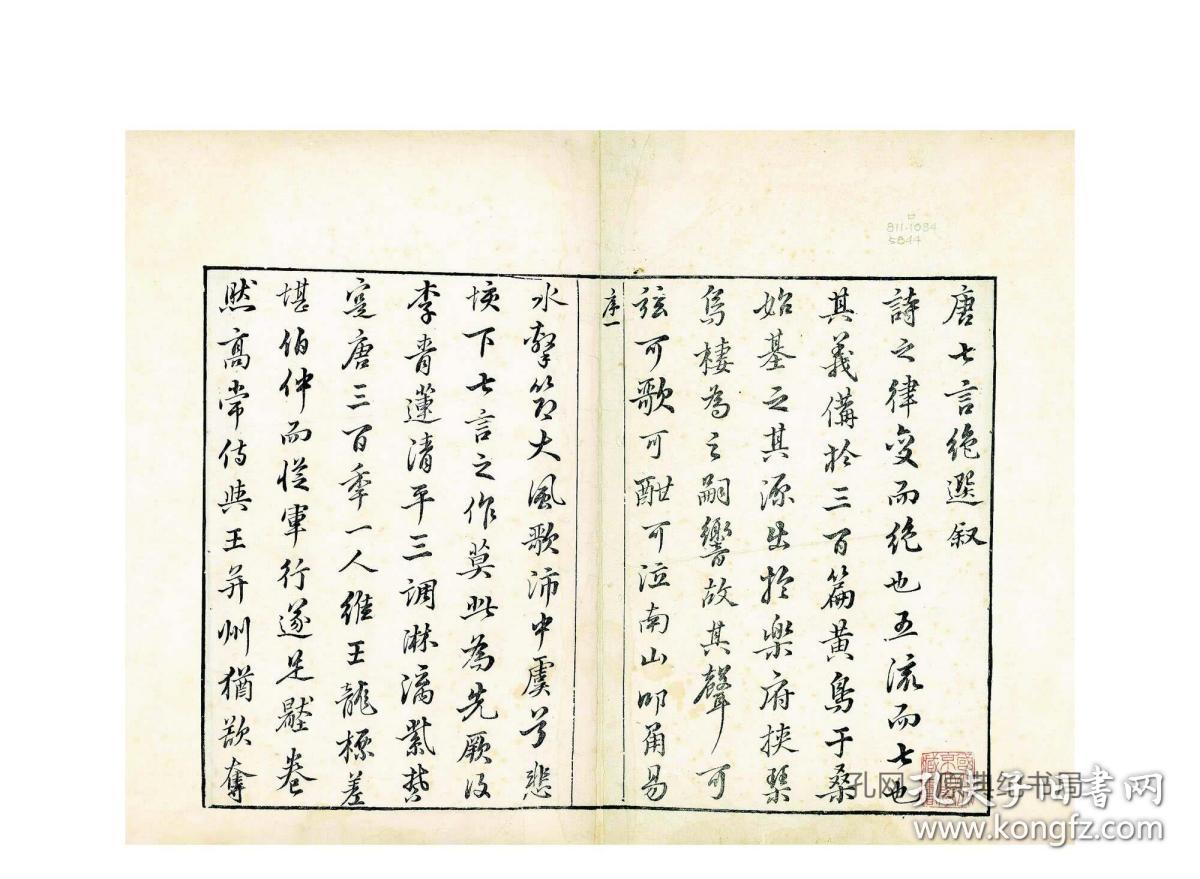 唐七言絶選叙
詩之律变而絶也五流而七也
其義備於三百篇黄鳥于桑
始基之其源出於樂府挾琴
烏棲為之嗣響故其聲可
弦可歌可酣可泣南山叩角易
序一
水擊筑大風歌沛中虞兮悲
垓下七言之作莫此為先厥後
李青蓮清平三調淋漓紫禁
寔唐三百季一人維王龍標差
堪伯仲而從軍行遂足壓卷
然高常侍與王并州猶欲奪
811.1084
5844
孔网 原典纪书局
孔夫子旧书网
www.kongfz.com